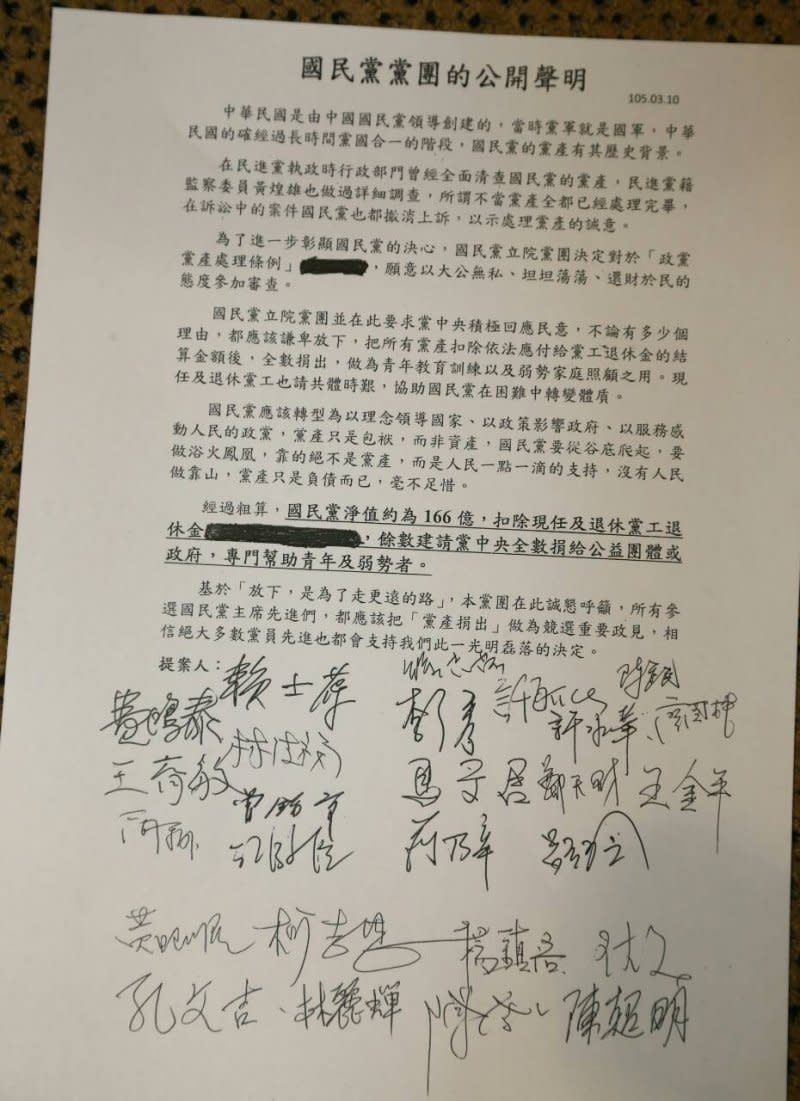 國民黨黨團的公開聲明
105.03.10
中華民國是由中國國民黨領導創建的，當時黨軍就是國軍，中華
民國的確經過長時間黨國合一的階段，國民黨的黨產有其歷史背景。
在民進黨執政時行政部門曾經全面清查國民黨的黨產，民進黨籍
監察委員黃煌雄也做過詳細調查，所謂不當黨產全都已經處理完畢，
在訴訟中的案件國民黨也都撤消上訴，以示處理黨產的誠意。
為了進一步彰顯國民黨的決心，國民黨立院黨團決定對於「政黨
黨產處理條例」，願意以大公無私、坦坦蕩蕩、還財於民的
態度參加審查。
國民黨立院黨團並在此要求黨中央積極回應民意，不論有多少個
理由，都應該謙卑放下，把所有黨產扣除依法應付給黨工退休金的結
算金額後，全數捐出，做為青年教育訓練以及弱勢家庭照顧之用。現
任及退休黨工也請共體時艱，協助國民黨在困難中轉變體質。
國民黨應該轉型為以理念領導國家、以政策影響政府、以服務感
動人民的政黨，黨產只是包袱，而非資產，國民黨要從谷底爬起，要
做浴火鳳凰，靠的絕不是黨產，而是人民一點一滴的支持，沒有人民
做靠山，黨產只是負債而已，毫不足惜。
經過粗算，國民黨淨值約為 166 億，扣除現任及退休黨工退
休金，餘數建請黨中央全數捐給公益團體或
政府，專門幫助青年及弱勢者。
基於「放下，是為了走更遠的路」，本黨團在此誠懇呼籲，所有參
選國民黨主席先進們，都應該把「黨產捐出」做為競選重要政見，相
信絕大多數黨員先進也都會支持我們此一光明磊落的決定。
提案人：
賴士葆
王育敏
鄭天財
孔文吉
林麗蟬
陳超明